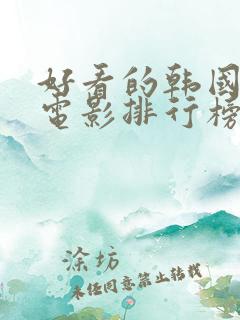 好看的韩国
电影排行榜
涂坊
未经同意禁止转载